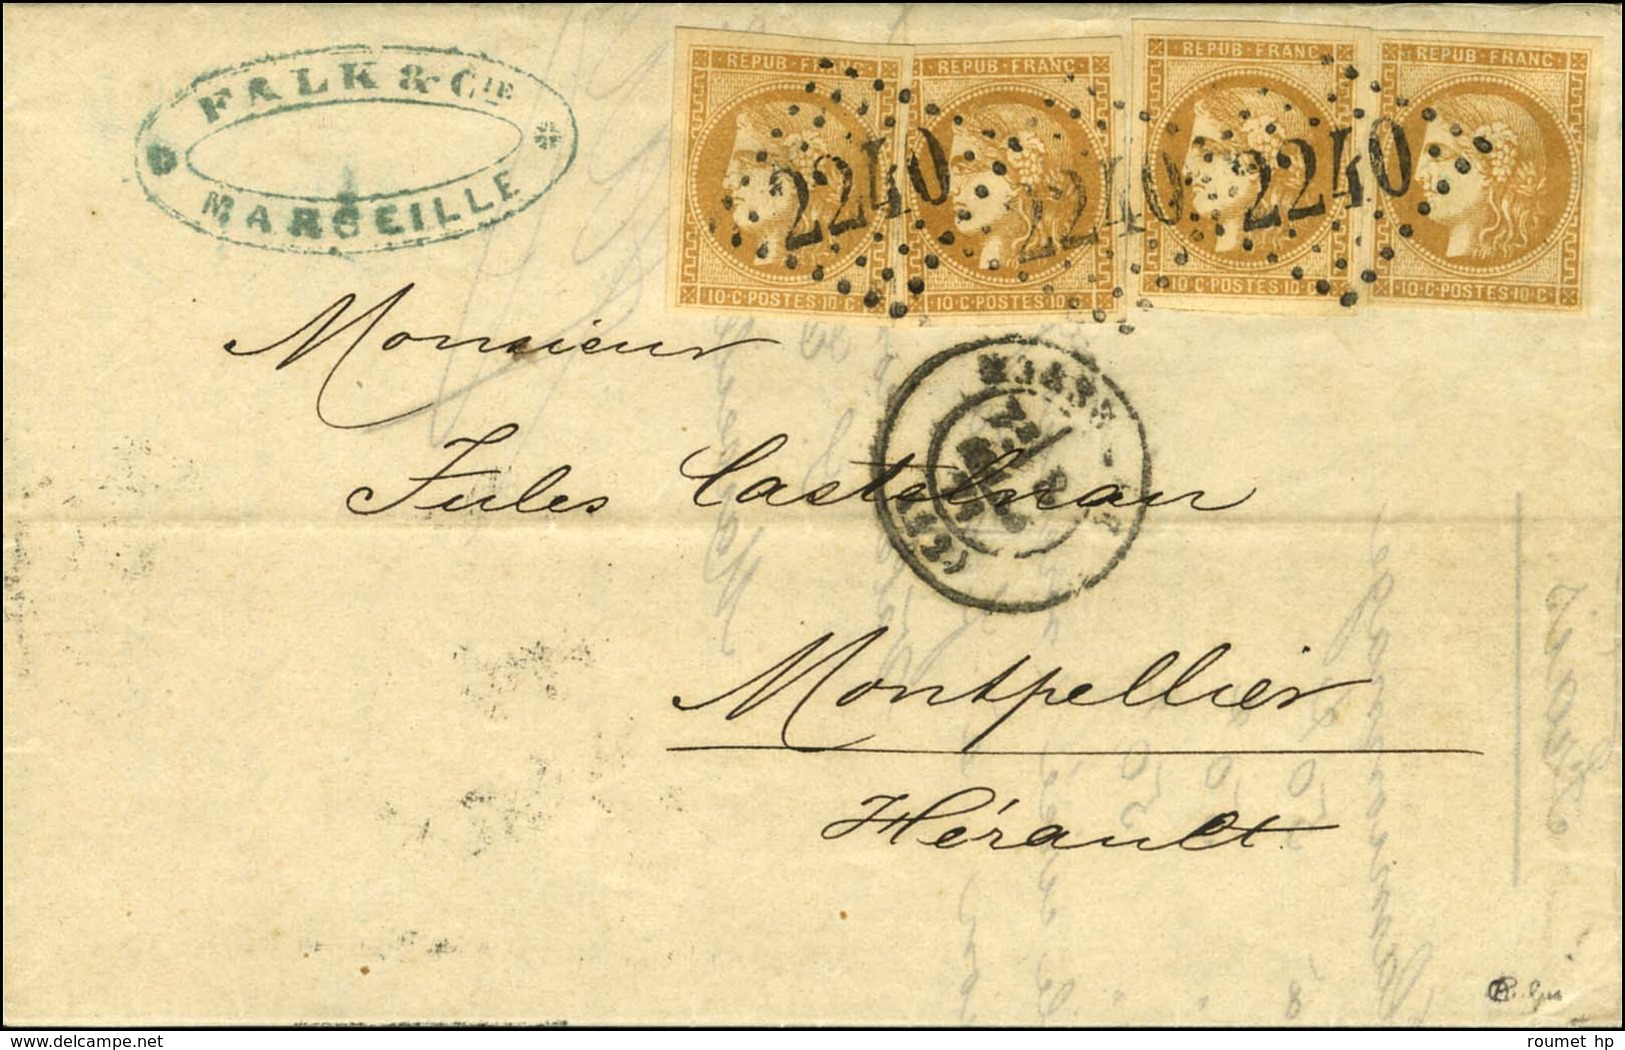 FALK & CIE
MARSEILLE
REPUB·FRANC
10·C·POSTES·10·C
REPUB·FRANC
10·C·POSTES·10
REPUB·FRANC
10·C·POSTES·10·C
REPUB·FRANC
10·C·POSTES·10·C
2240
2240
2240
Monsieur
Jules Castelnau
Montpellier
Hérault
roumet hp